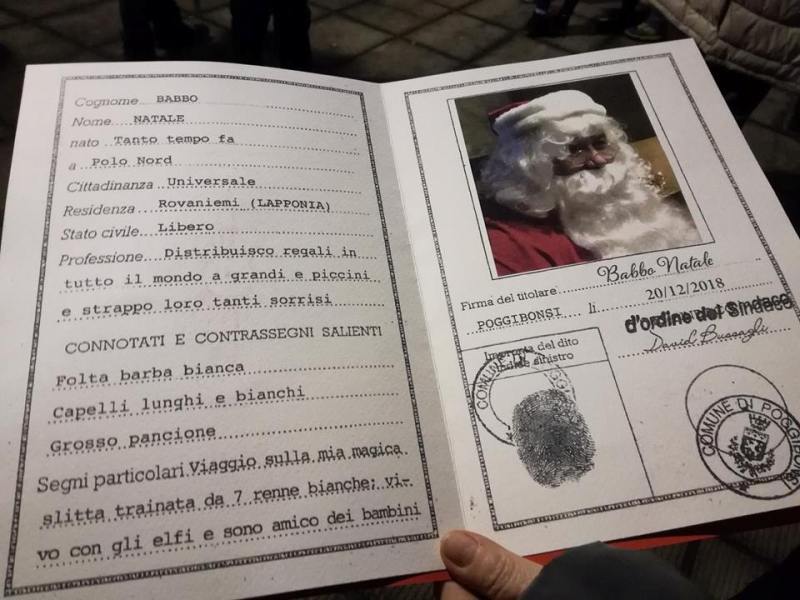 Cognome BABBO
Nome NATALE
nato Tanto tempo fa
a Polo Nord
Cittadinanza Universale
Residenza Rovaniemi (LAPPONIA)
Stato civile Libero
Professione Distribuisco regali in
tutto il mondo a grandi e piccini
e strappo loro tanti sorrisi
CONNOTATI E CONTRASSEGNI SALIENTI
Folta barba bianca
Capelli lunghi e bianchi
Grosso pancione
Segni particolari Viaggio sulla mia magica
slitta trainata da 7 renne bianche; vi-
vo con gli elfi e sono amico dei bambini
Firma del titolare Babbo Natale
POGGIBONSI li 20/12/2018
d'ordine del Sindaco
Impronta del dito
indice sinistro
COMUNE DI
COMUNE DI